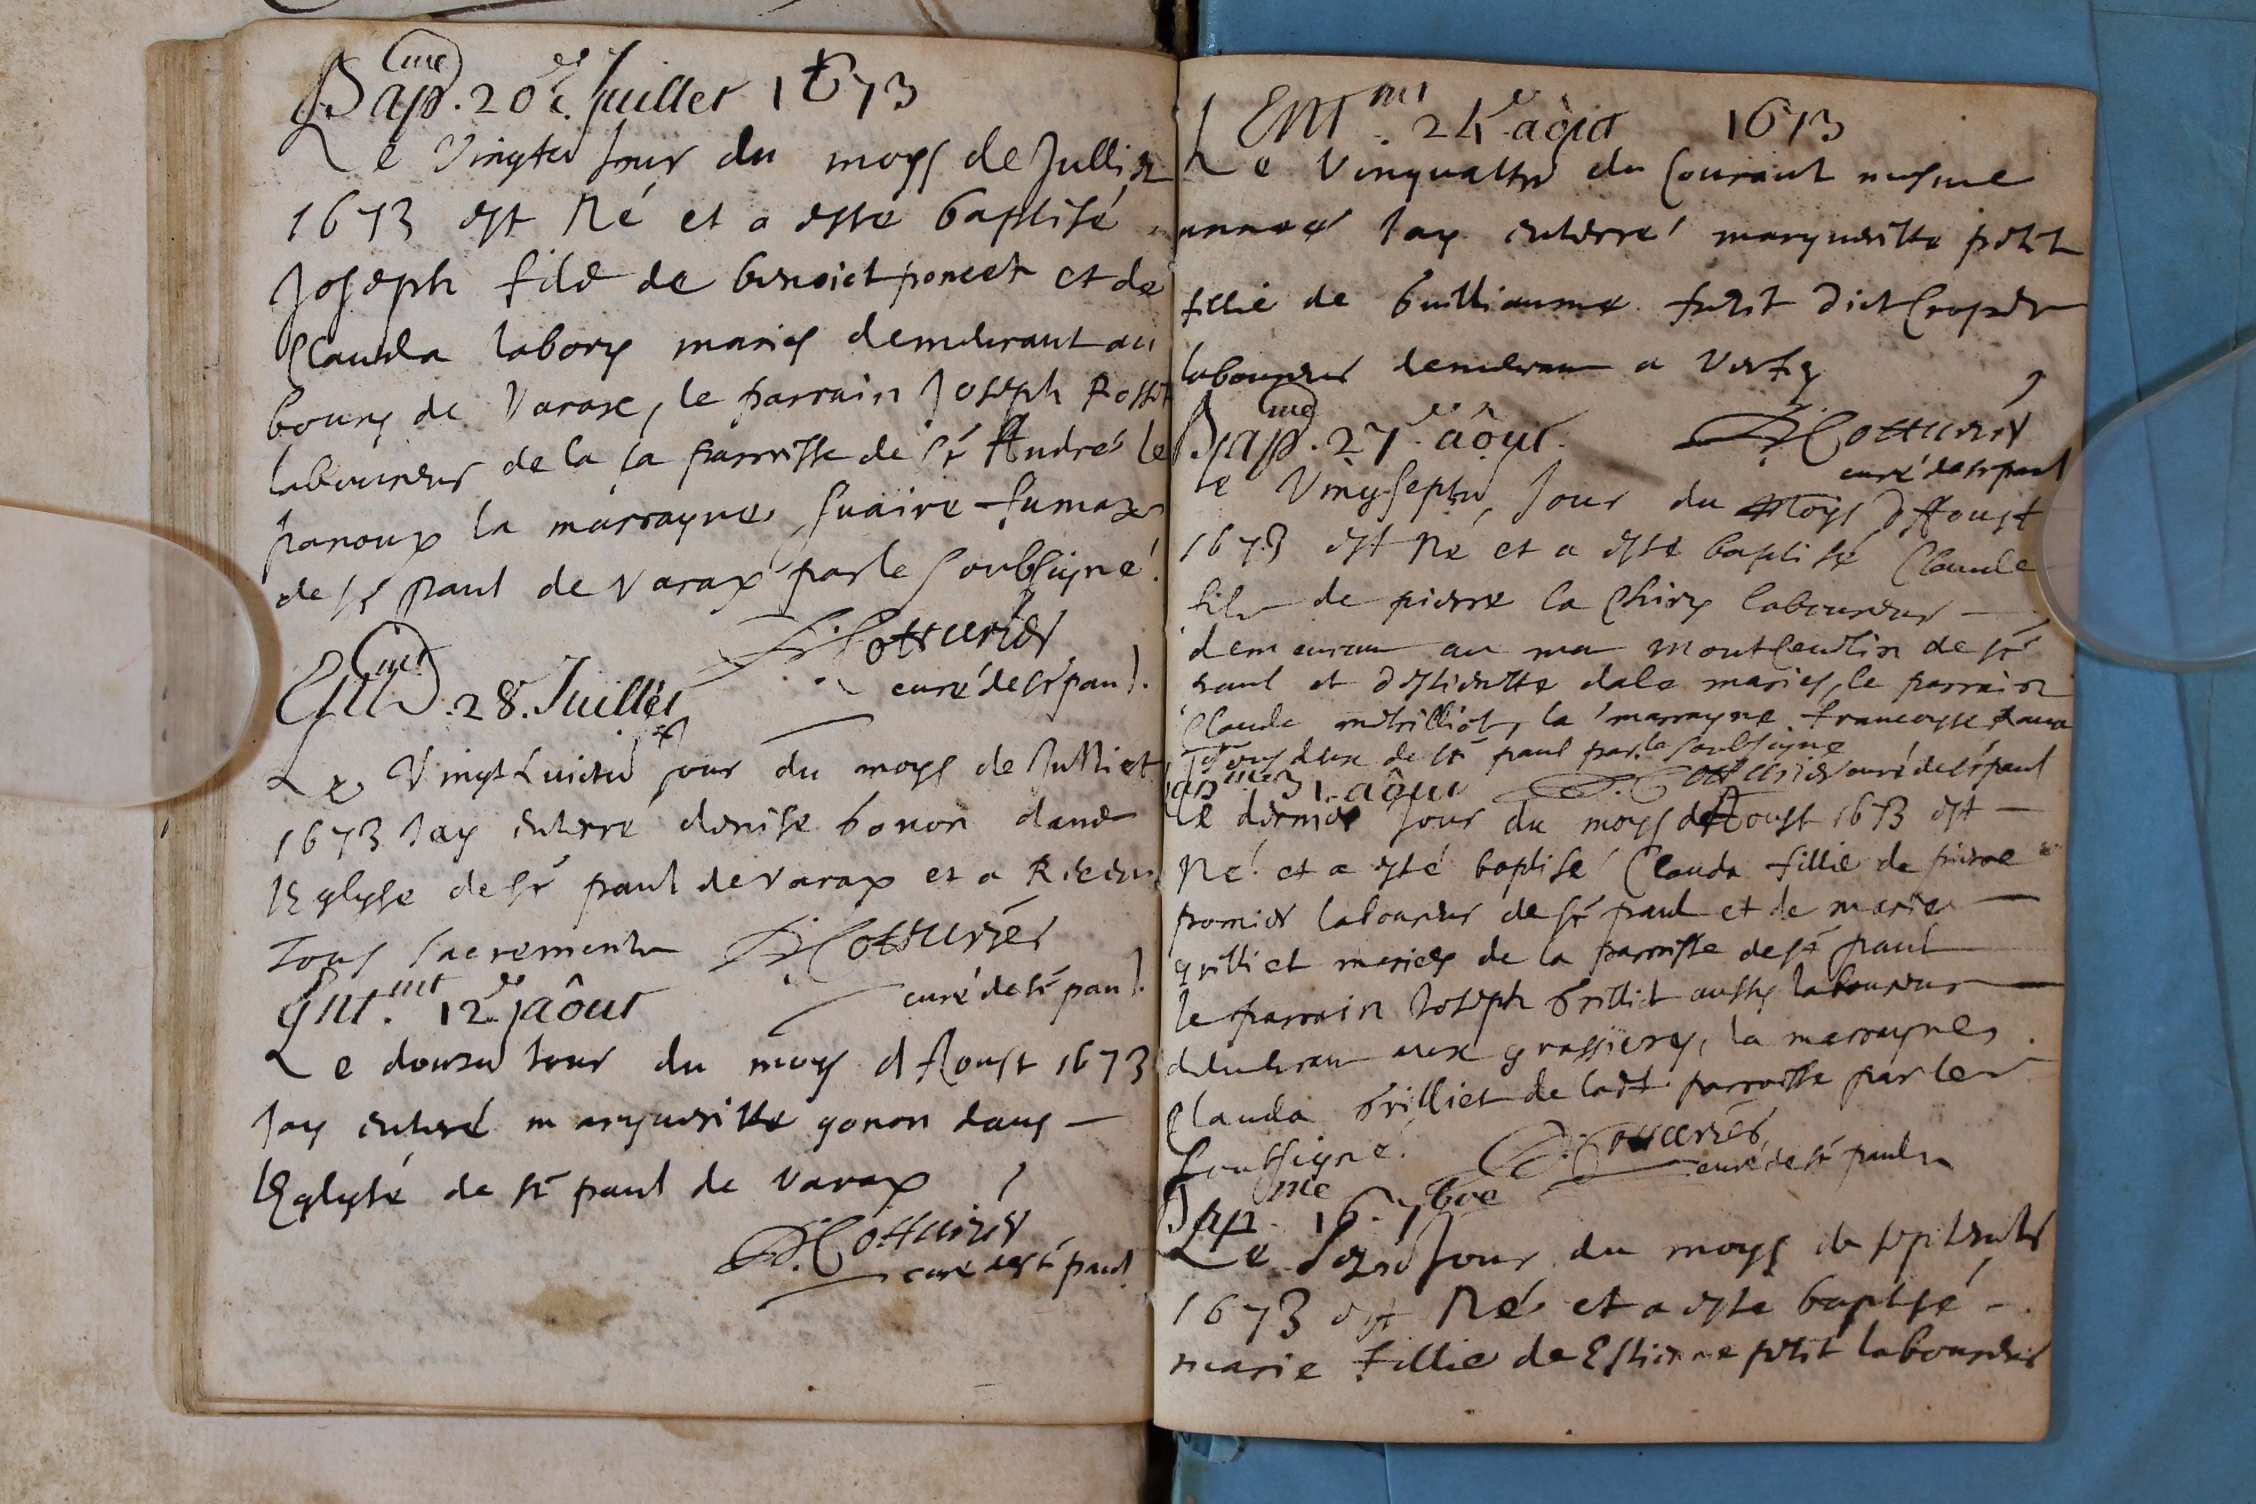 Bap.me 20e Juillet 1673
Le Vingtie Jour du moys de Jullie
1673 est Né et a esté baptisé
Joseph filz de benoict poncet et de
Clauda labory mariés demeurant au
bourg de Varax, le parrain Joseph Rosset
laboureur de la parroisse de st André le
panoux la marrayne
de st paul de Varax par le soubsigné
Cotturier
curé de st paul.
Ent.mt 28. Juillet
Le Vingt huictie jour du moys de Julliet
1673 Jay enterré denise bonon dans
lEglyse de st paul de Varax et a
Tous sacrements Cotturier
curé de st paul.
Ent.mt 12e aôut
Le douzie Jour du moys dAoust 1673
Jay enterré margueritte gonon dans
lEglyse de st paul de Varax
Cotturier
curé de st paul
Entmt 24e aôut 1673
Le Vingquattre du Courant mesme
annee Jay enterré margueritte petit
fillie de Guilliaume petit dict
laboureur demeurant a
Bap.me 27e aôut. Cotturier
curé de st paul
le Vingseptie Jour du Moys dAoust
1673 est Né et a esté baptisé Claude
filz de pierre la Chiry laboureur
demeurant au ma de st
paul et destiennette dale mariés, le parrain
Claude la marrayne francoyse
Tous deux de st paul par le soubsigné
Bap.me 31. aôut Cotturier curé de st paul
Le dernier Jour du moys dAoust 1673 est
Né et a esté baptisé Clauda fillie de pierre
laboureur de st paul et de marie
grilliet mariés de la parroisse de st paul
le parrain Joseph Grilliet aussy laboureur
demeurant aux grassieres, la marrayne
Clauda Grilliet de ladt parroisse par le
soubsigné. Cotturier
curé de st paul
Bap.me 16. 7bre
Le Sezie Jour du moys de septembre
1673 est Né et a esté baptisé
marie fillie de Estienne petit laboureur